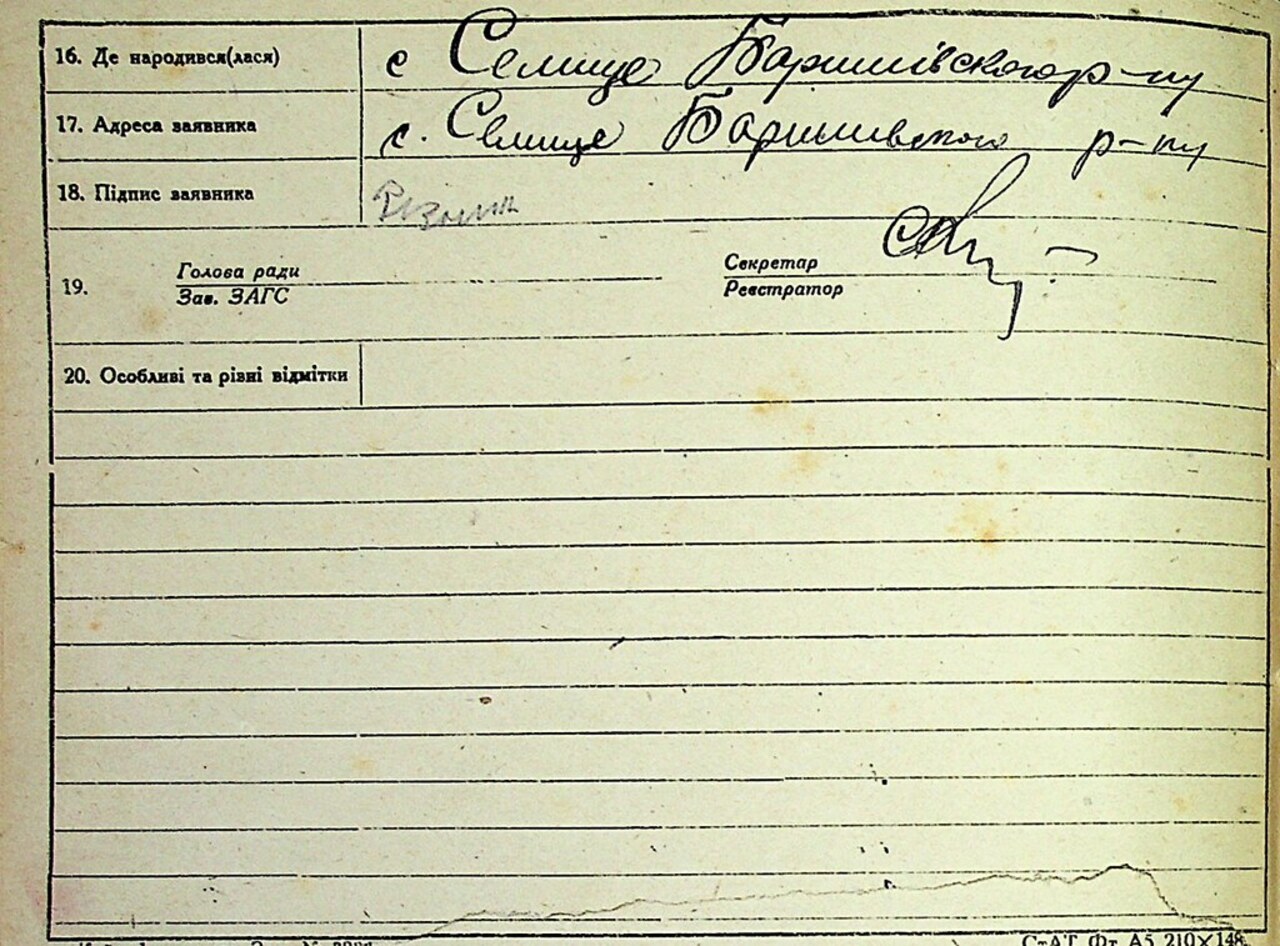 16. Де народився(лася) с Селище Баришівского р-ну
17. Адреса заявника с. Селище Баришивского р-ну
18. Підпис заявника
19. Голова ради Секретар
Зав. ЗАГС Реєстратор
20. Особливі та рівні відмітки
СтАТ Фт А5 210×148.